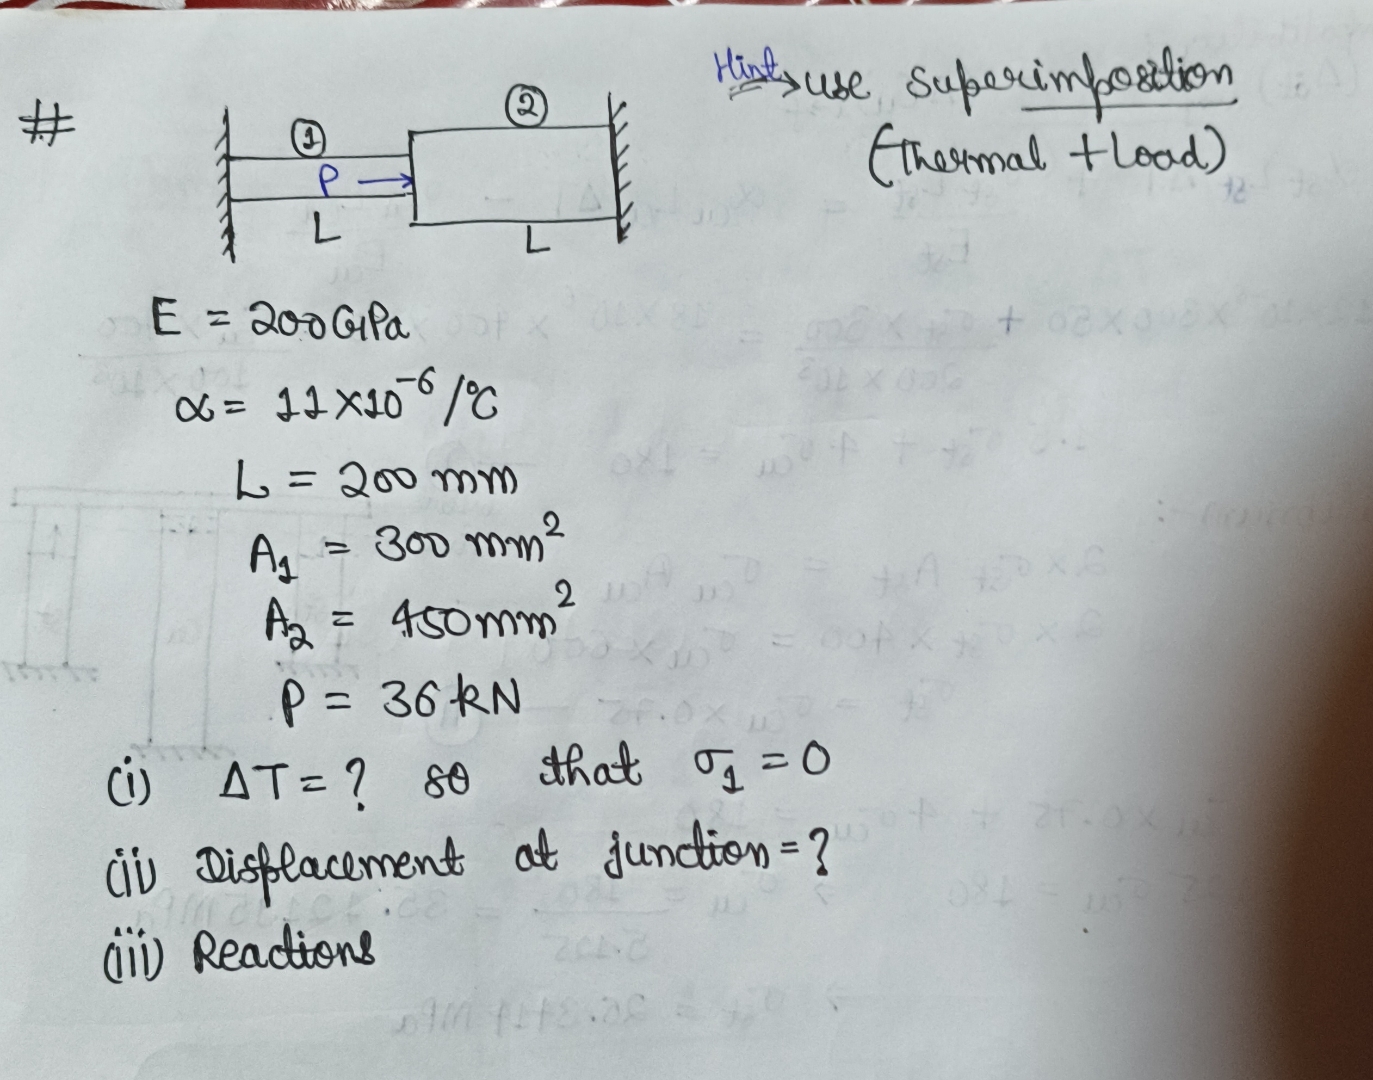 Hint → use superimposition
(Thermal + Load)
#
① ②
P →
L L
E = 200 GPa
α = 11 × 10⁻⁶ /°C
L = 200 mm
A₁ = 300 mm²
A₂ = 450 mm²
P = 36 kN
(i) ΔT = ? so that σ₁ = 0
(ii) Displacement at junction = ?
(iii) Reactions